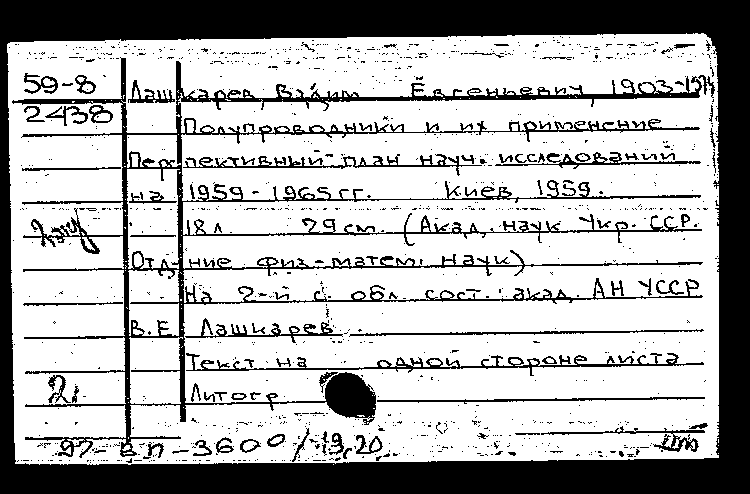 59-8 Лашкарев, Вадим Евгеньевич, 1903-1974
2438 Полупроводники и их применение
Перспективный план науч. исследований
на 1959-1965 гг. Киев, 1959.
18 л. 29 см (Акад. наук Укр. ССР.
Отд-ние физ.-матем. наук)
На 2-й с. обл. сост.: акад. АН УССР
В.Е. Лашкарев
Текст на одной стороне листа
2. Литогр.
97-ВП-3600/19,20